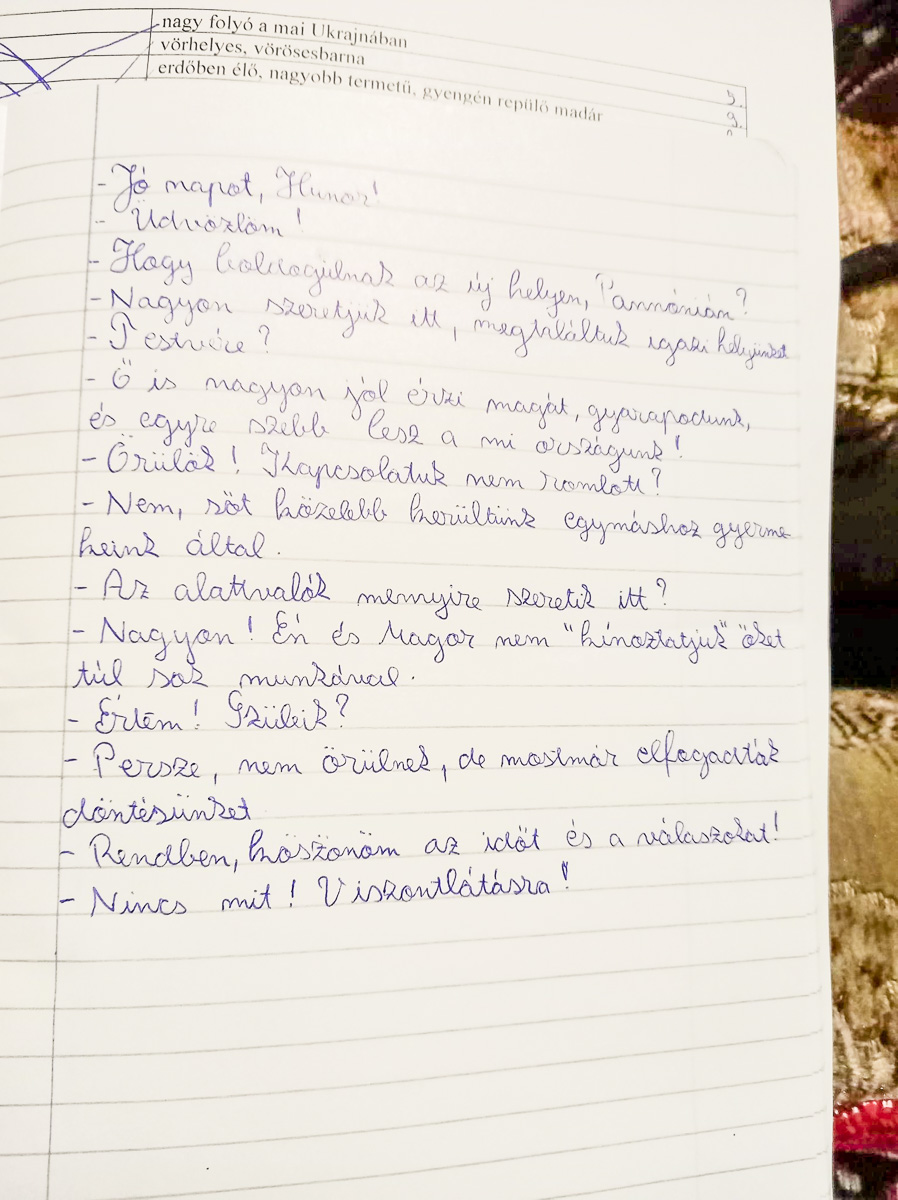 nagy folyó a mai Ukrajnában
vörhelyes, vörösesbarna
erdőben élő, nagyobb termetű, gyengén repülő madár
- Jó napot, Hunor!
- Üdvözlöm!
- Hogy boldogulnak az új helyen, Pannónián?
- Nagyon szeretjük itt, megtaláltuk igazi helyünket
- Testvére?
- Ő is nagyon jól érzi magát, gyarapodunk,
és egyre szebb lesz a mi országunk!
- Örülök! Kapcsolatuk nem romlott?
- Nem, sőt közelebb kerültünk egymáshoz gyerme
keink által.
- Az alattvalók mennyire szeretik itt?
- Nagyon! Én és Magor nem "kínoztatjuk" őket
túl sok munkával.
- Értem! Szüleik?
- Persze, nem örülnek, de mostmár elfogadták
döntésünket
- Rendben, köszönöm az időt és a válaszokat!
- Nincs mit! Viszontlátásra!